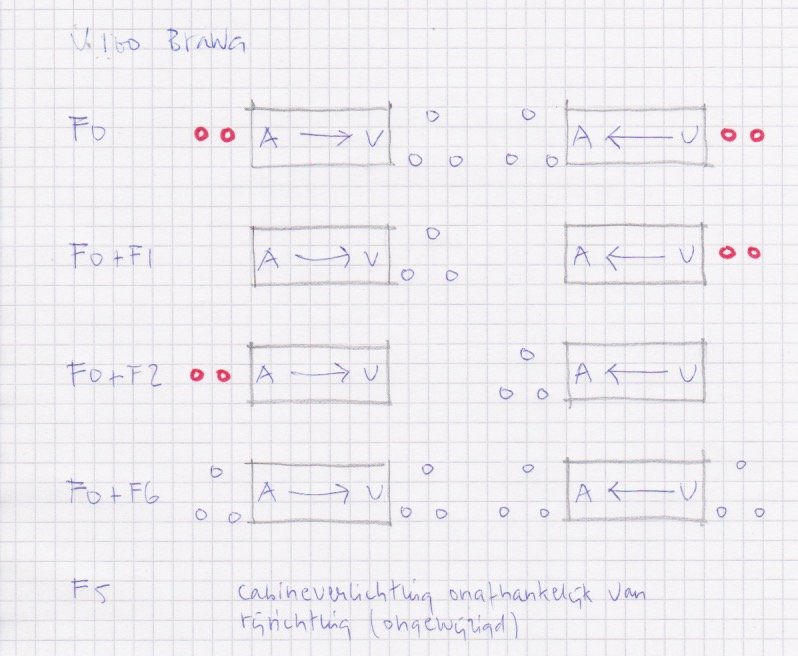 V100 Brawa
F0 A → V A ← V
F0+F1 A → V A ← V
F0+F2 A → V A ← V
F0+F6 A → V A ← V
F5 cabineverlichting onafhankelijk van
rijrichting (ongewijzigd)